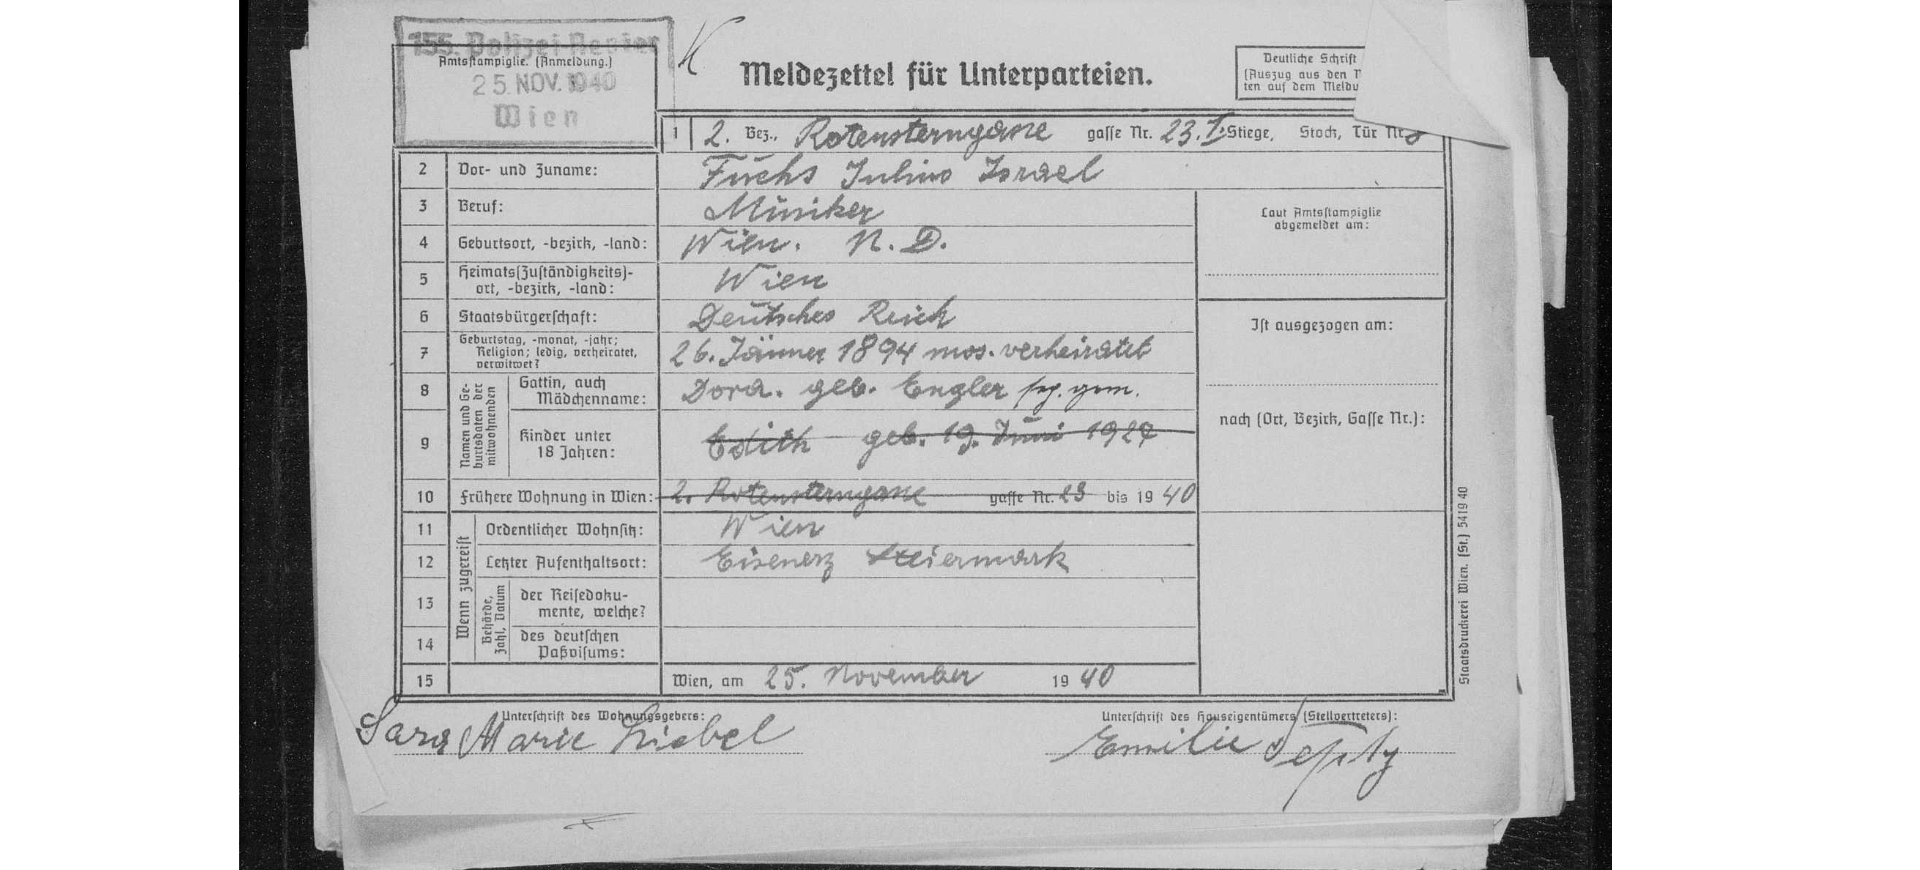 155. Polizei-Revier
Amtsstampiglie. (Anmeldung.)
25. NOV. 1940
Wien
K
Meldezettel für Unterparteien.
Deutliche Schrift
(Auszug aus den
ten auf dem Meldu
1 2. Bez., Rotensterngasse gasse Nr. 23. I. Stiege, Stock, Tür Nr. 8
2 Vor- und Zuname: Fuchs Julius Israel
3 Beruf: Musiker
Laut Amtsstampiglie
abgemeldet am:
4 Geburtsort, -bezirk, -land: Wien. N. D.
5 Heimats(Zuständigkeits)-
ort, -bezirk, -land: Wien
6 Staatsbürgerschaft: Deutsches Reich
Ist ausgezogen am:
7 Geburtstag, -monat, -jahr;
Religion; ledig, verheiratet,
verwitwet? 26. Jänner 1894 mos. verheiratet
Namen und Ge-
burtsdaten der
mitwohnenden
8 Gattin, auch
Mädchenname: Dora. geb. Engler
9 Kinder unter
18 Jahren: Edith geb. 19. Juni 1927
nach (Ort, Bezirk, Gasse Nr.):
10 Frühere Wohnung in Wien: 2. Rotensterngasse gasse Nr. 23 bis 1940
Wenn zugereist
11 Ordentlicher Wohnsitz: Wien
12 Letzter Aufenthaltsort: Eisenerz Steiermark
Behörde,
Zahl, Datum
13 der Reisedoku-
mente, welche?
14 des deutschen
Paßvisums:
15 Wien, am 25. November 1940
Staatsdruckerei Wien. (St.) 5419 40
Unterschrift des Wohnungsgebers:
Sara Marie
Unterschrift des Hauseigentümers (Stellvertreters):
Emilie